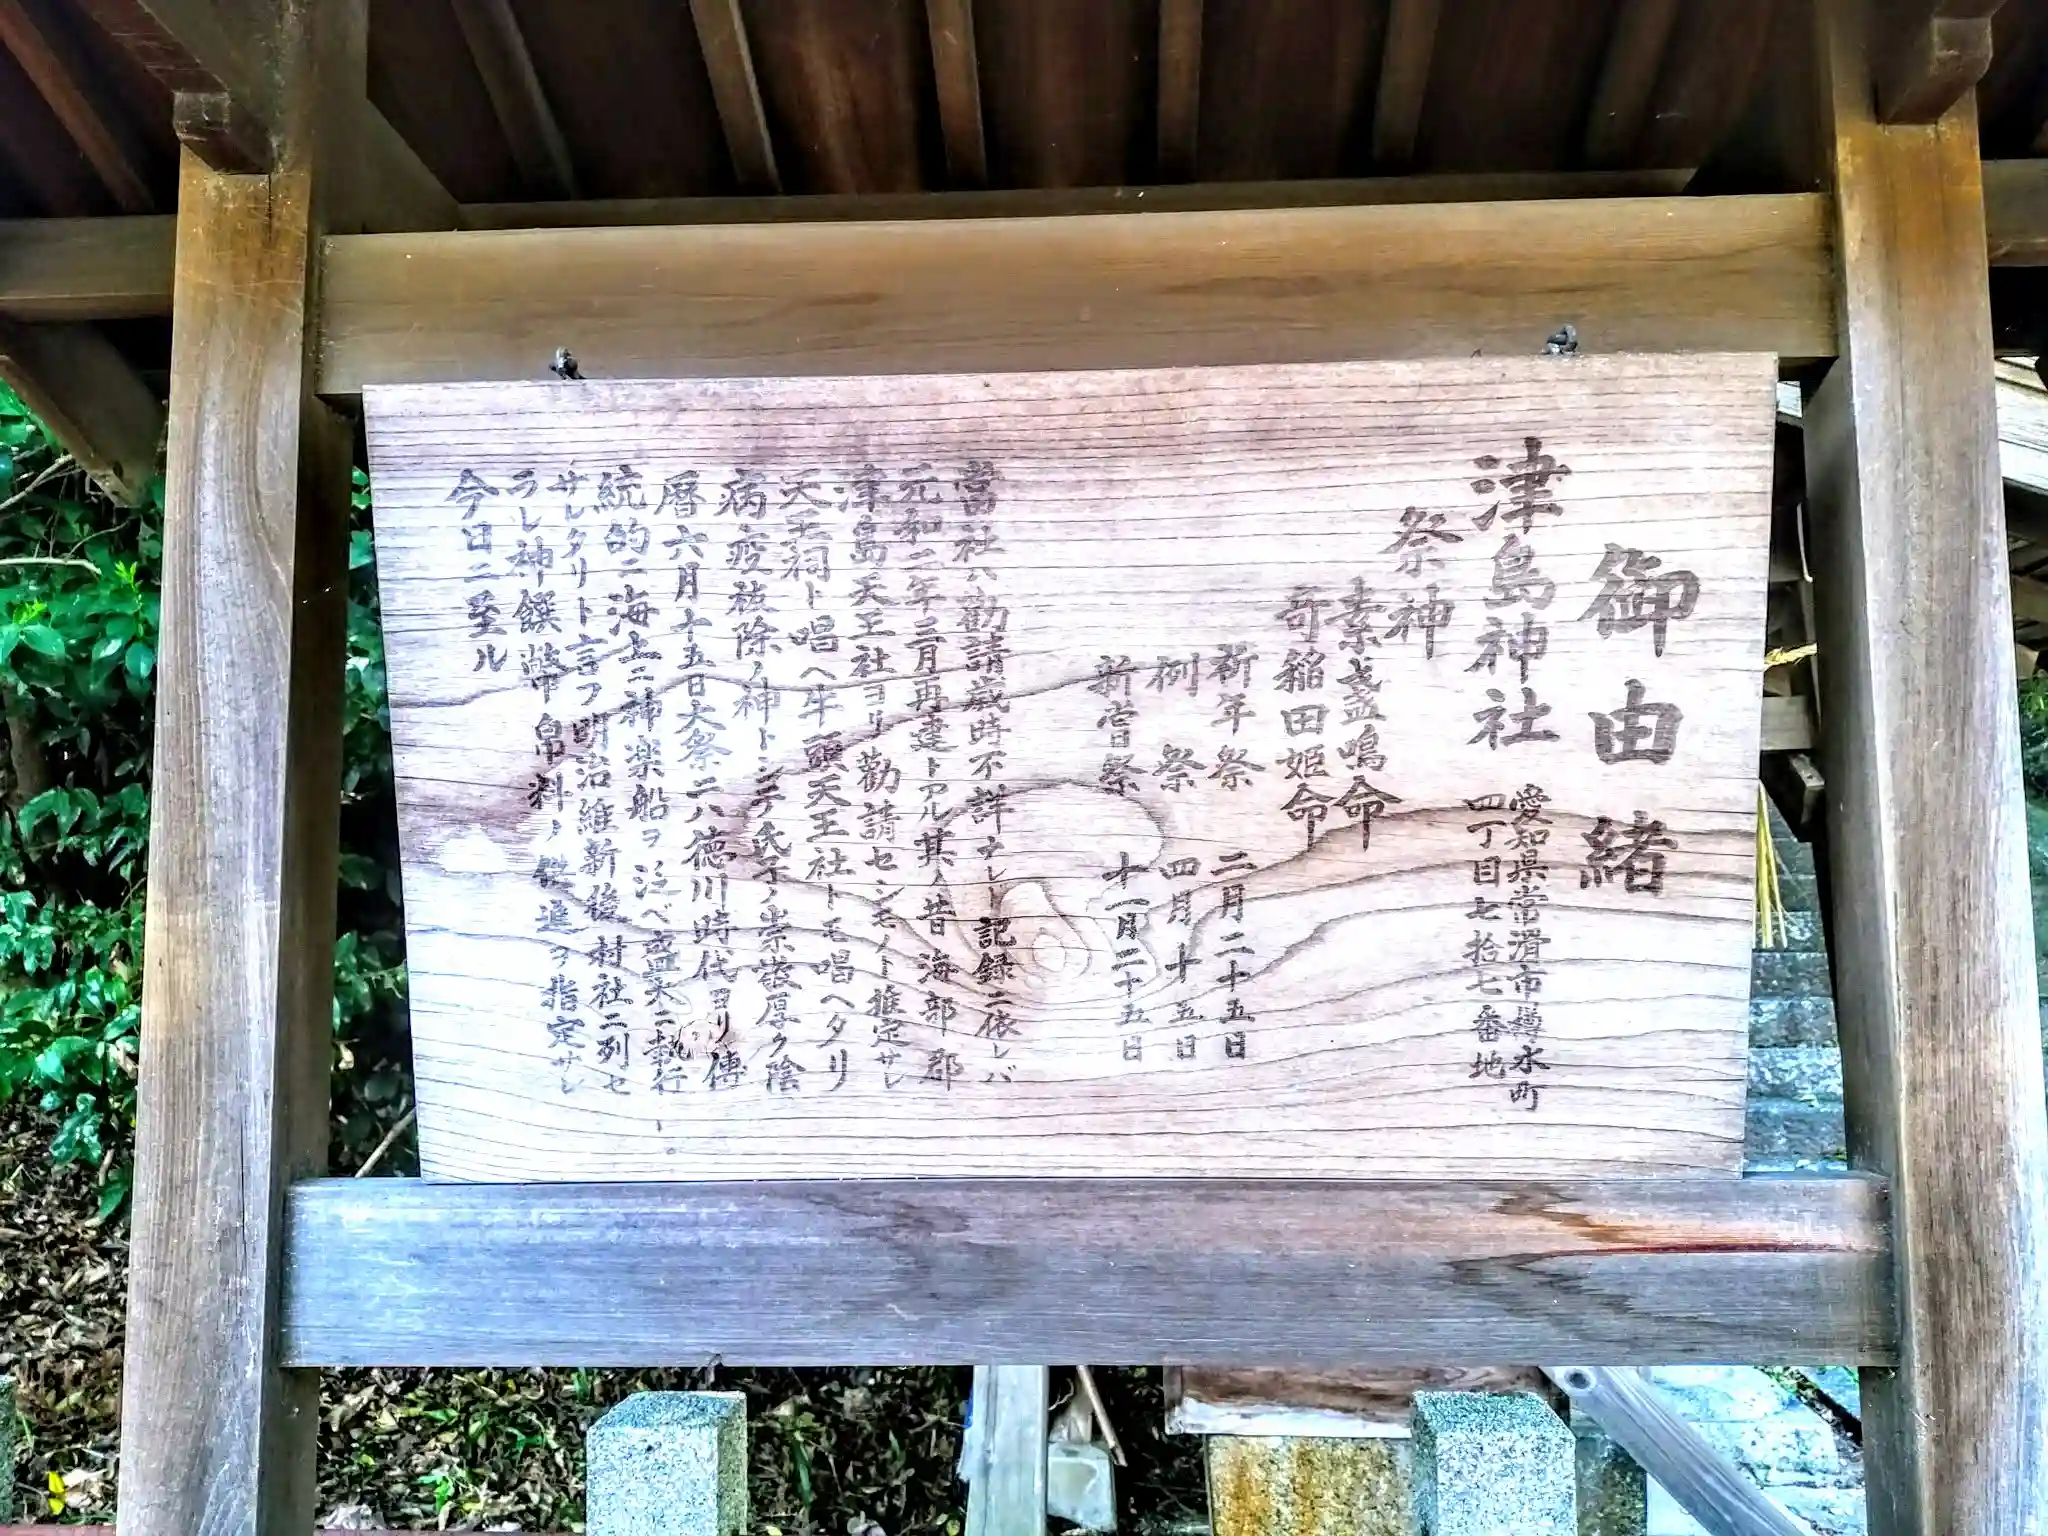 御由緒
津島神社
愛知県常滑市樽水町
四丁目七拾七番地
祭神
素盞嗚命
奇稲田姫命
祈年祭 二月二十五日
例祭 四月十五日
新嘗祭 十一月二十五日
當社ハ勸請歳時不詳ナレト記録ニ依レバ
元和二年三月再建トアル其ノ昔海部郡
津島天王社ヨリ勸請センモノト推定サレ
天王祠ト唱ヘ牛頭天王社トモ唱ヘタリ
病疫祓除ノ神トシテ氏子ノ崇敬厚ク陰
暦六月十五日大祭ニハ徳川時代ヨリ傳
統的ニ海上ニ神楽船ヲ泛ベ盛大ニ執行
サレタリト言フ明治維新後村社ニ列セ
ラレ神饌幣帛料ノ供進ヲ指定サレ
今日ニ至ル